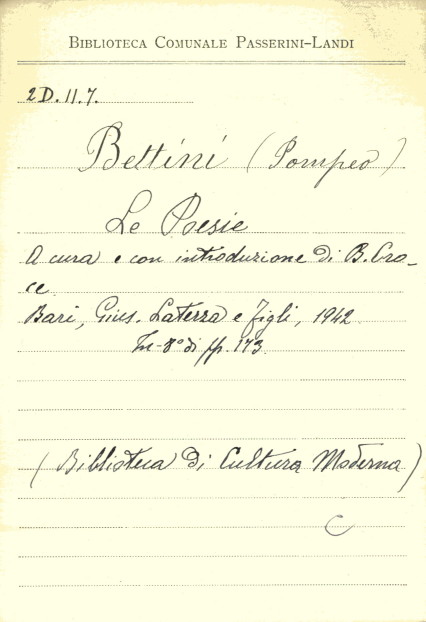 BIBLIOTECA COMUNALE PASSERINI-LANDI
2D.11.7.
Bettini (Pompeo)
Le Poesie
A cura e con introduzione di B. Cro-
ce
Bari, Gius. Laterza e Figli, 1942
In-8° di pp. 173.
(Biblioteca di Cultura Moderna)
C